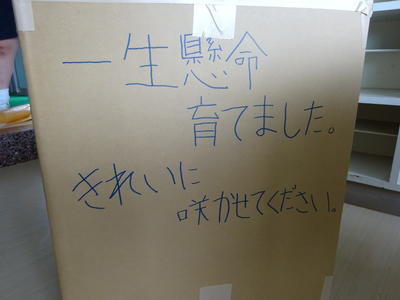 一生懸命
育てました。
きれいに
咲かせてください。